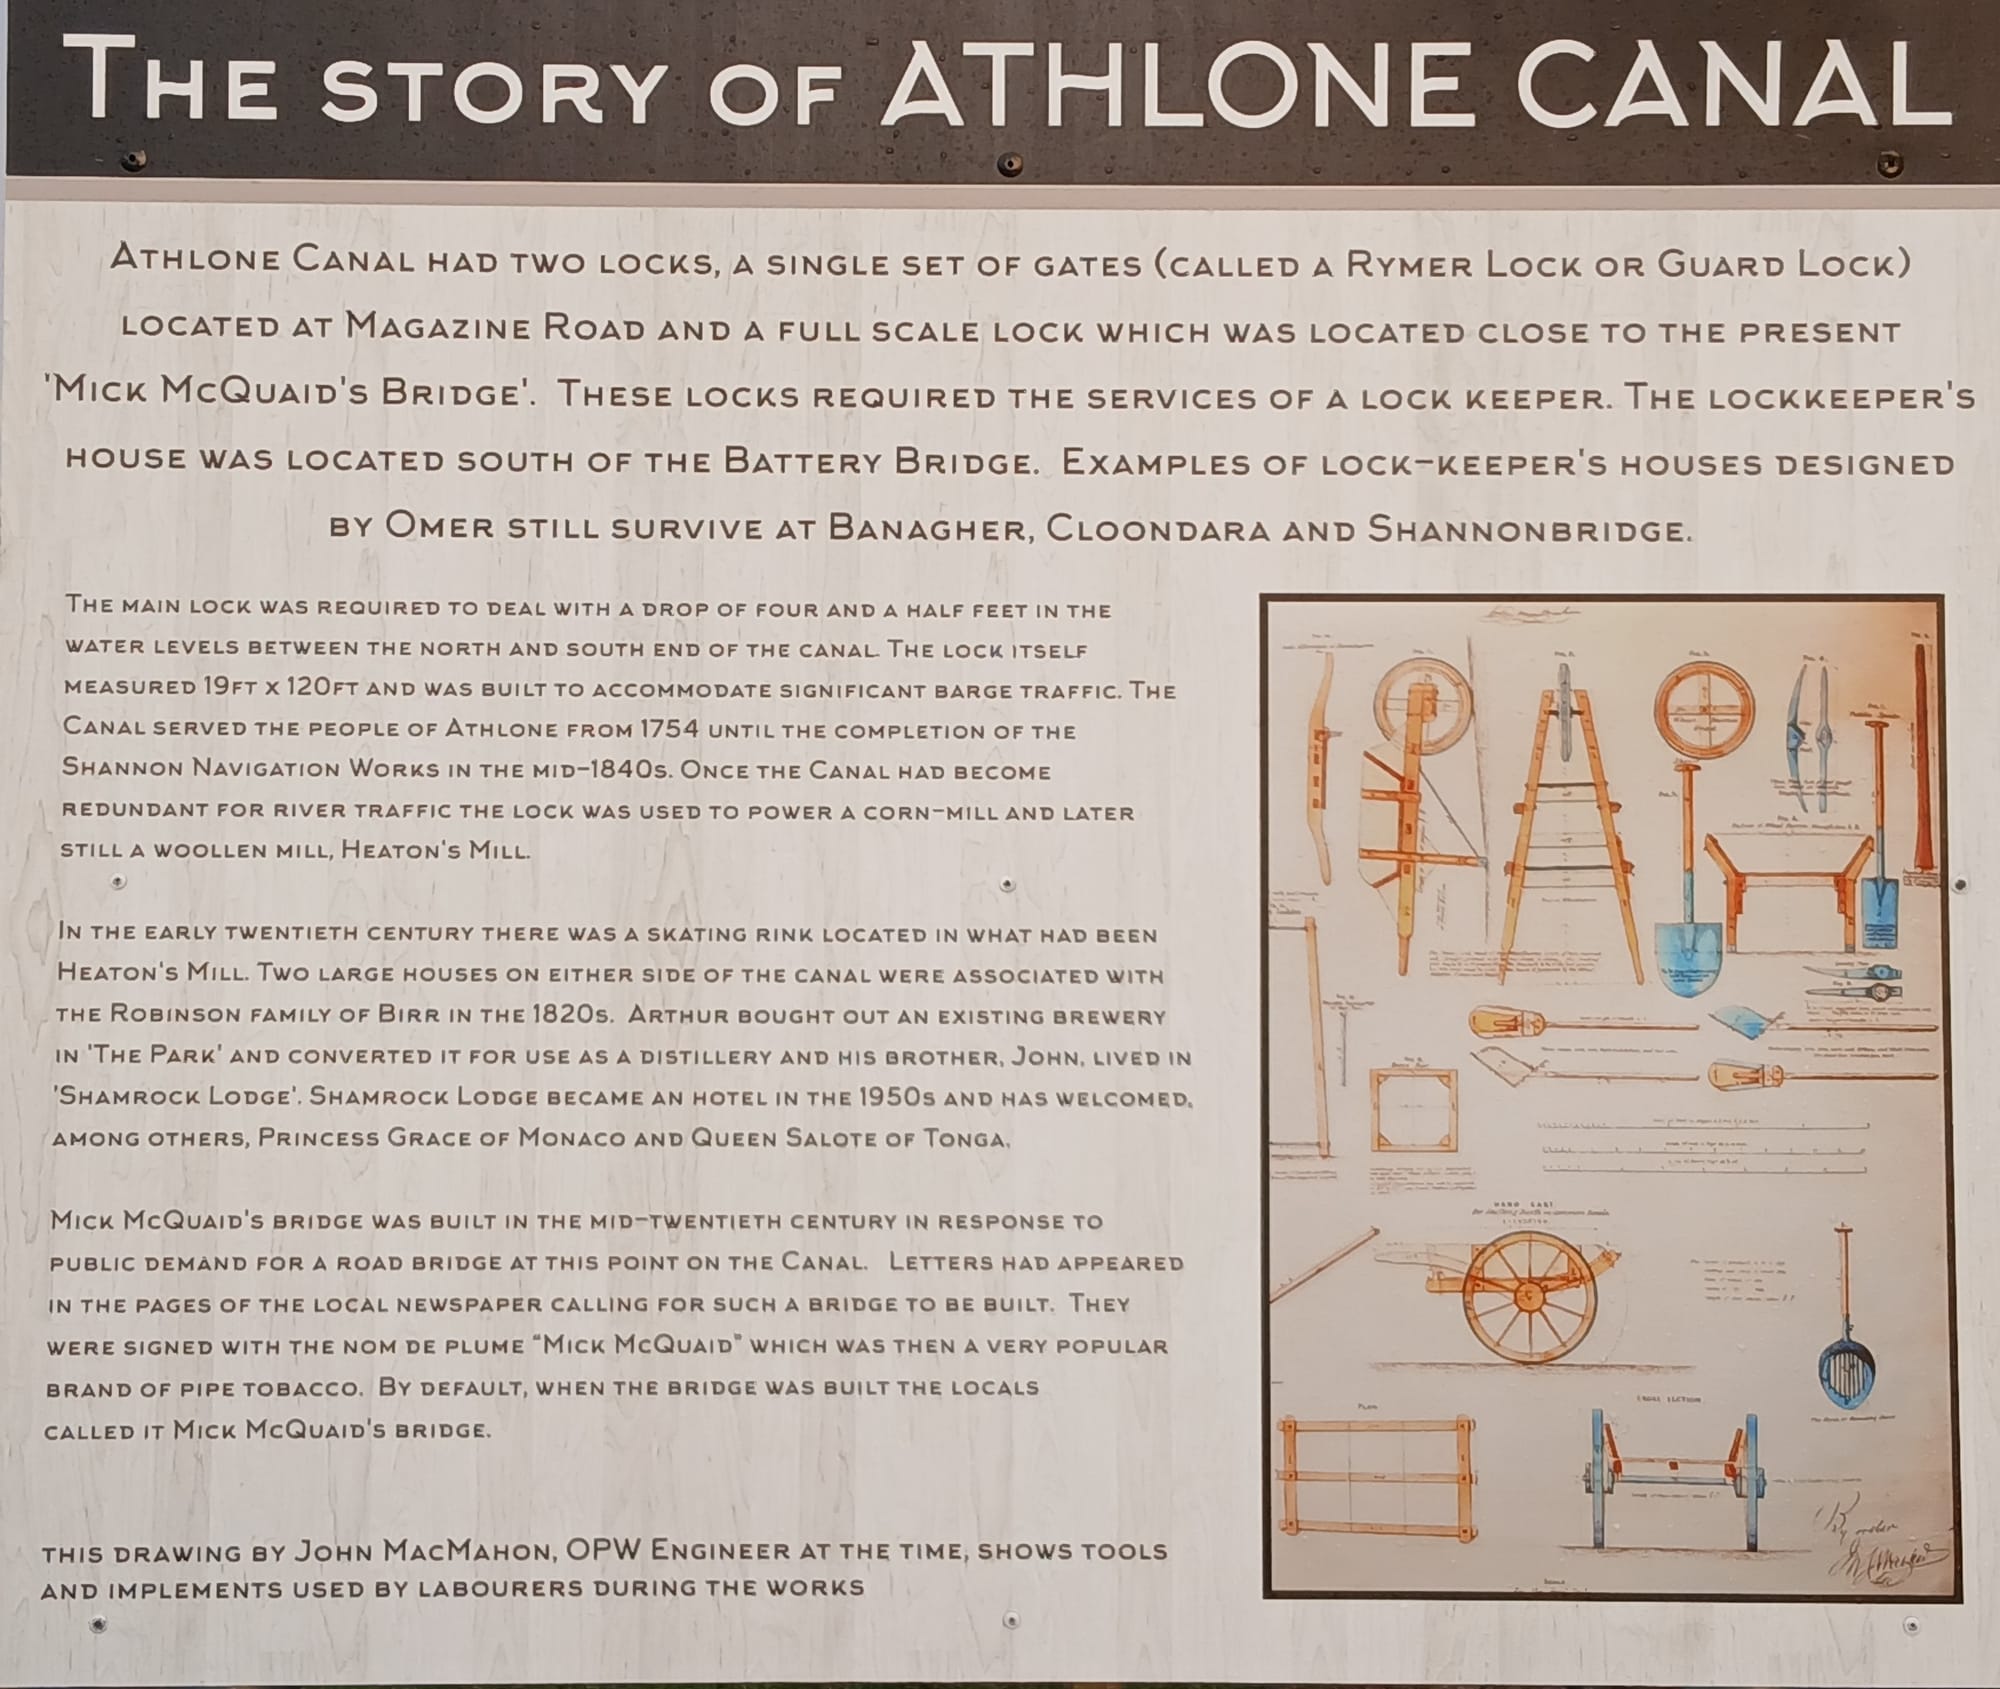 The story of ATHLONE CANAL
Athlone Canal had two locks, a single set of gates (called a Rymer Lock or Guard Lock)
located at Magazine Road and a full scale lock which was located close to the present
'Mick McQuaid's Bridge'. These locks required the services of a lock keeper. The lockkeeper's
house was located south of the Battery Bridge. Examples of lock-keeper's houses designed
by Omer still survive at Banagher, Cloondara and Shannonbridge.
The main lock was required to deal with a drop of four and a half feet in the
water levels between the north and south end of the canal. The lock itself
measured 19ft x 120ft and was built to accommodate significant barge traffic. The
Canal served the people of Athlone from 1754 until the completion of the
Shannon Navigation Works in the mid-1840s. Once the Canal had become
redundant for river traffic the lock was used to power a corn-mill and later
still a woollen mill, Heaton's Mill.
In the early twentieth century there was a skating rink located in what had been
Heaton's Mill. Two large houses on either side of the canal were associated with
the Robinson family of Birr in the 1820s. Arthur bought out an existing brewery
in 'The Park' and converted it for use as a distillery and his brother, John, lived in
'Shamrock Lodge'. Shamrock Lodge became an hotel in the 1950s and has welcomed,
among others, Princess Grace of Monaco and Queen Salote of Tonga.
Mick McQuaid's bridge was built in the mid-twentieth century in response to
public demand for a road bridge at this point on the Canal. Letters had appeared
in the pages of the local newspaper calling for such a bridge to be built. They
were signed with the nom de plume “Mick McQuaid” which was then a very popular
brand of pipe tobacco. By default, when the bridge was built the locals
called it Mick McQuaid's bridge.
this drawing by John MacMahon, OPW Engineer at the time, shows tools
and implements used by labourers during the works
HAND CART
ELEVATION
PLAN
CROSS SECTION